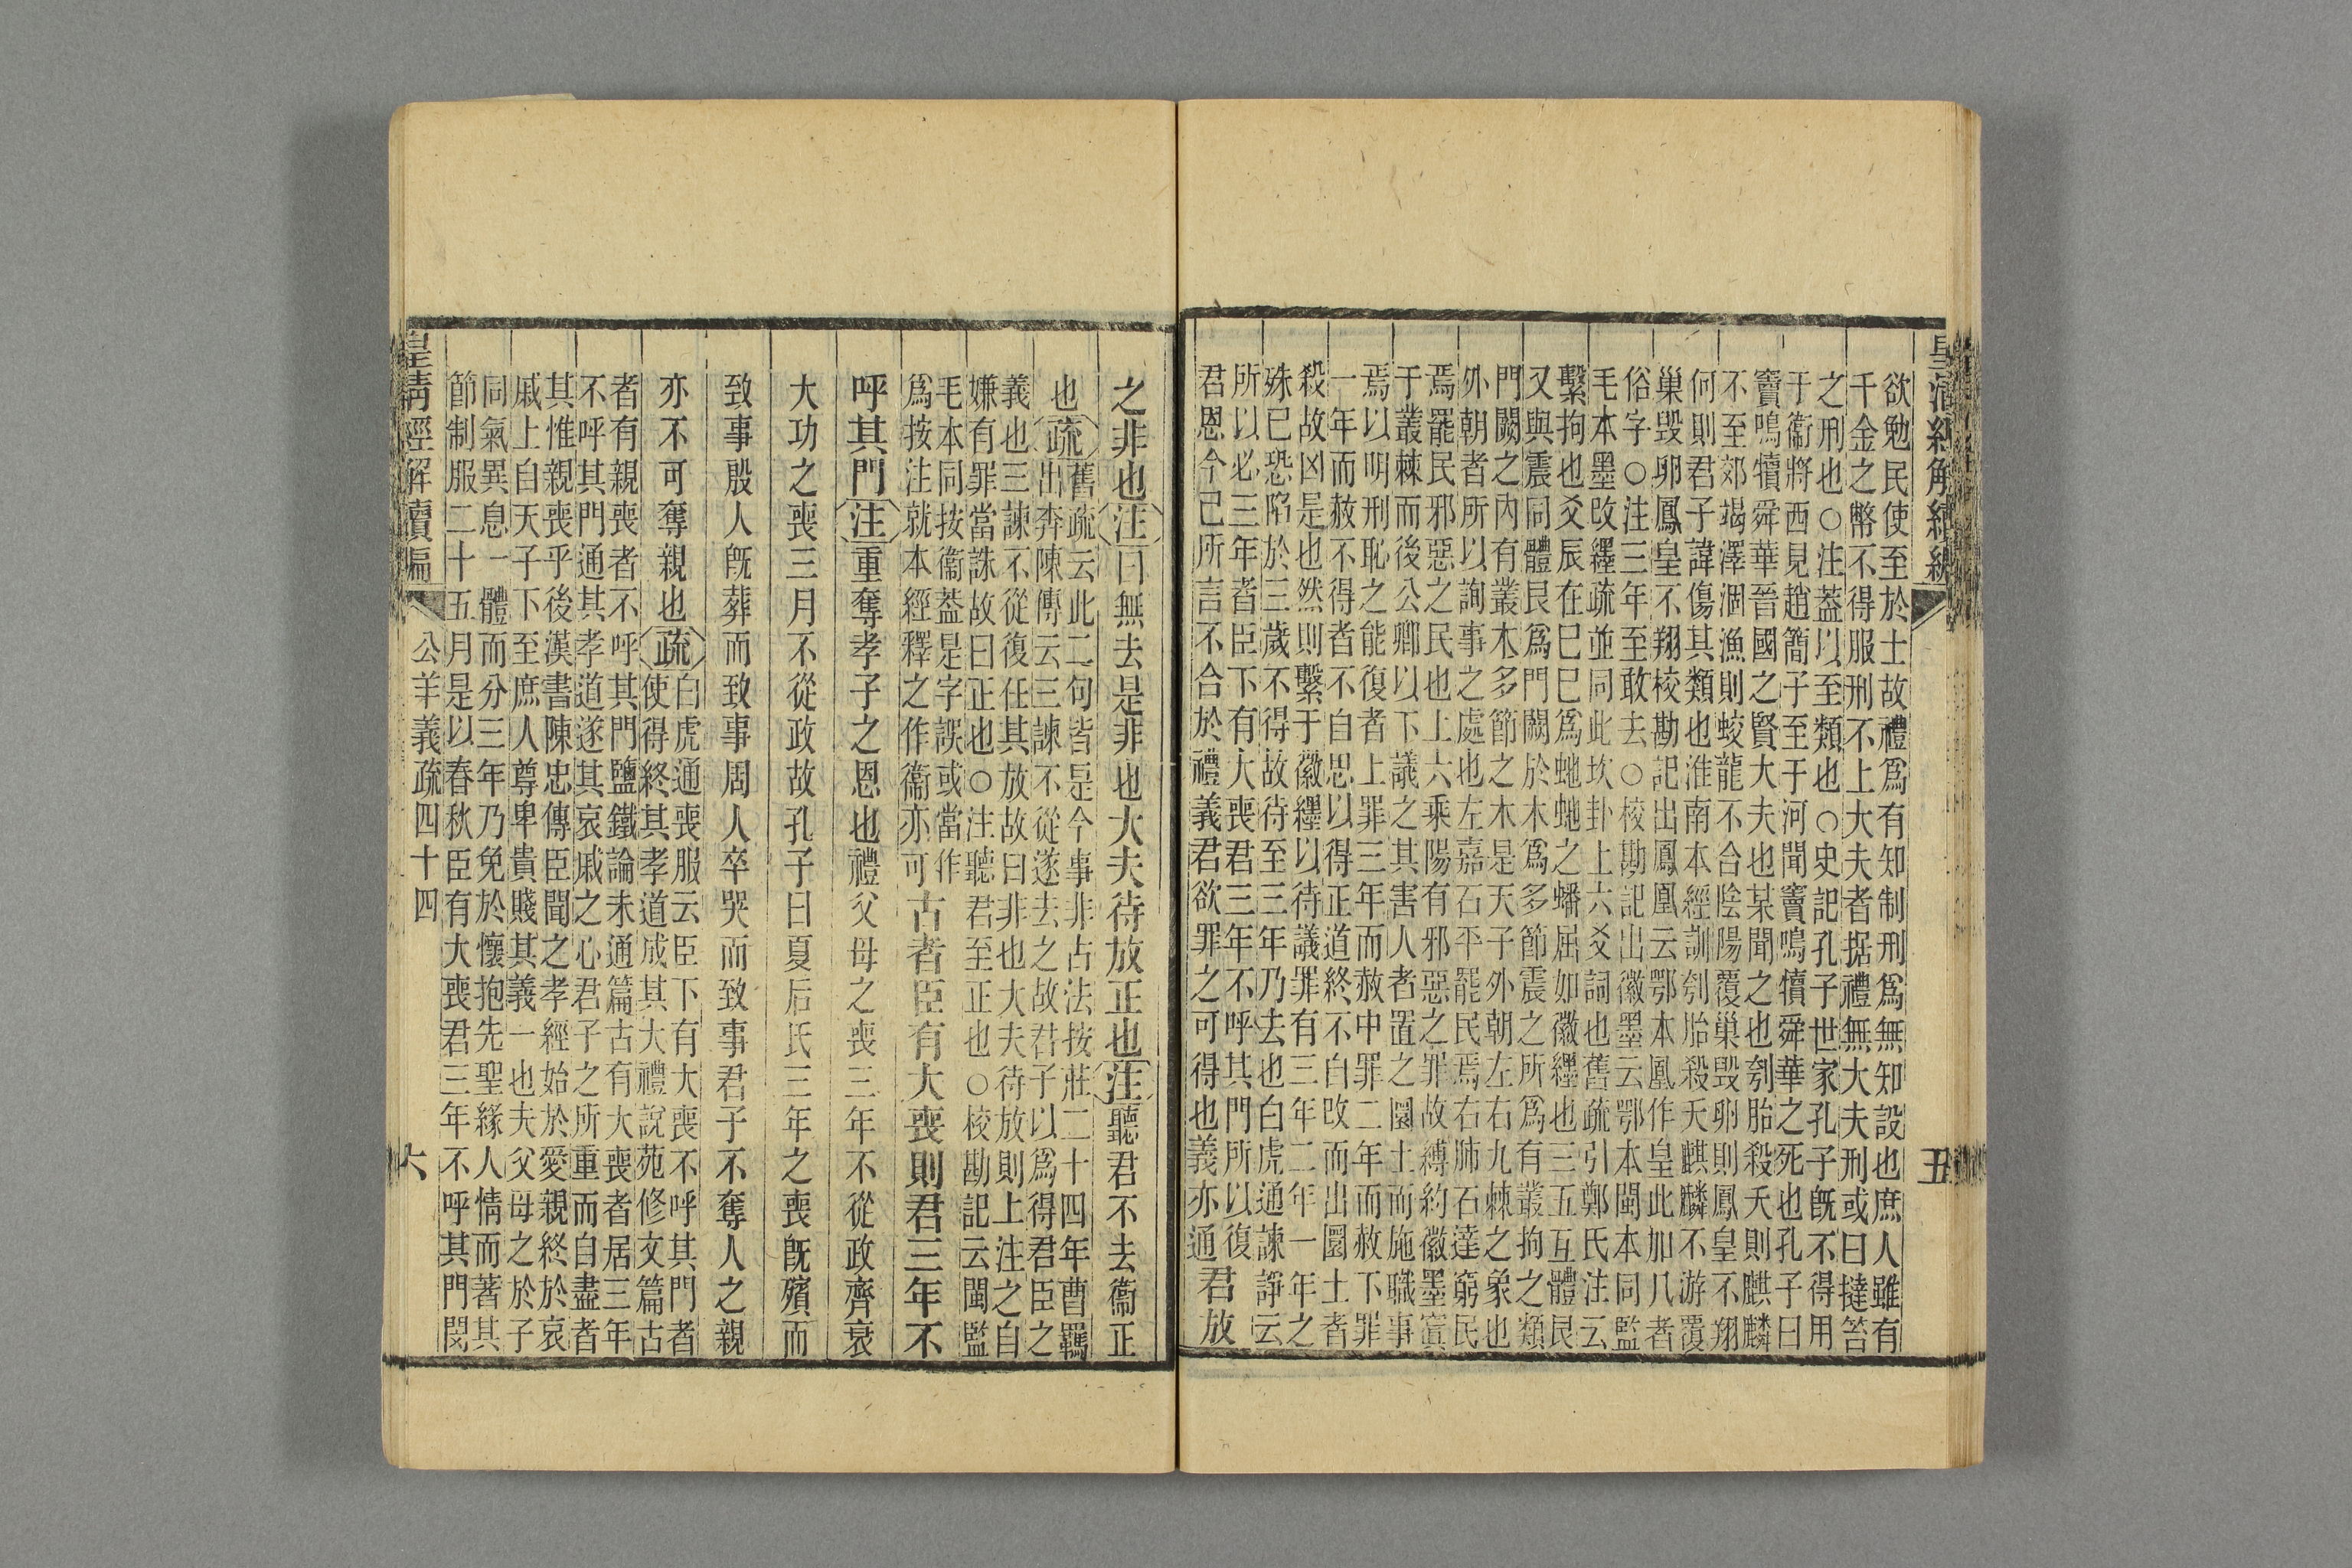 皇清經解續編
丑
欲勉民使至於士故禮爲有知制刑爲無知設也庶人雖有
千金之幣不得服刑不上大夫者据禮無大夫刑或曰撻笞
之刑也○注蓋以至類也○史記孔子世家孔子旣不得用
于衞將西見趙簡子至于河聞竇鳴犢舜華之死也孔子曰
竇鳴犢舜華晉國之賢大夫也某聞之也刳胎殺夭則麒麟
不至郊竭澤涸漁則蛟龍不合陰陽覆巢毀卵則鳳皇不翔
何則君子諱傷其類也淮南本經訓刳胎殺夭麒麟不游覆
巢毀卵鳳皇不翔校勘記出鳳凰云鄂本凰作皇此加几者
俗字○注三年至敢去○校勘記出徽墨云鄂本閩本同監
毛本墨改纆疏並同此坎卦上六爻詞也舊疏引鄭氏注云
繫拘也爻辰在巳巳爲虵虵之蟠屈如徽纆也三五互體艮
又與震同體艮爲門闕於木爲多節震之所爲有叢拘之類
門闕之內有叢木多節之木是天子外朝左右九棘之象也
外朝者所以詢事之處也左嘉石平罷民焉右肺石達窮民
焉罷民邪惡之民也上六乘陽有邪惡之罪故縛約徽墨寘
于叢棘而後公卿以下議之其害人者置之圜土而施職事
焉以明刑恥之能復者上罪三年而赦中罪二年而赦下罪
一年而赦不得者不自思以得正道終不自改而出圜土者
殺故凶是也然則繫于徽纆以待議罪有三年二年一年之
殊巳恐陷於三歲不得故待至三年乃去也白虎通諫諍云
所以必三年者臣下有大喪君三年不呼其門所以復
君恩今己所言不合於禮義君欲罪之可得也義亦通
君放
之非也注曰無去是非也大夫待放正也注聽君不去衞正
也疏
舊疏云此二句皆是今事非占法按莊二十四年曹羈
出奔陳傳云三諫不從遂去之故君子以爲得君臣之
義也三諫不從復任其放故曰非也大夫待放則上注之自
嫌有罪當誅故曰正也○注聽君至正也○校勘記云閩監
毛本同按衞蓋是字誤或當作
爲按注就本經釋之作衞亦可
古者臣有大喪則君三年不
呼其門注重奪孝子之恩也禮父母之喪三年不從政齊衰
大功之喪三月不從政故孔子曰夏后氏三年之喪旣殯而
致事殷人旣葬而致事周人卒哭而致事君子不奪人之親
亦不可奪親也疏
白虎通喪服云臣下有大喪不呼其門者
使得終其孝道成其大禮說苑修文篇古
者有親喪者不呼其門鹽鐵論未通篇古有大喪者居三年
不呼其門通其孝道遂其哀戚之心君子之所重而自盡者
其惟親喪乎後漢書陳忠傳臣聞之孝經始於愛親終於哀
戚上自天子下至庶人尊卑貴賤其義一也夫父母之於子
同氣異息一體而分三年乃免於懷抱先聖緣人情而著其
節制服二十五月是以春秋臣有大喪君三年不呼其門閔
皇清經解續編
公羊義疏四十四
六